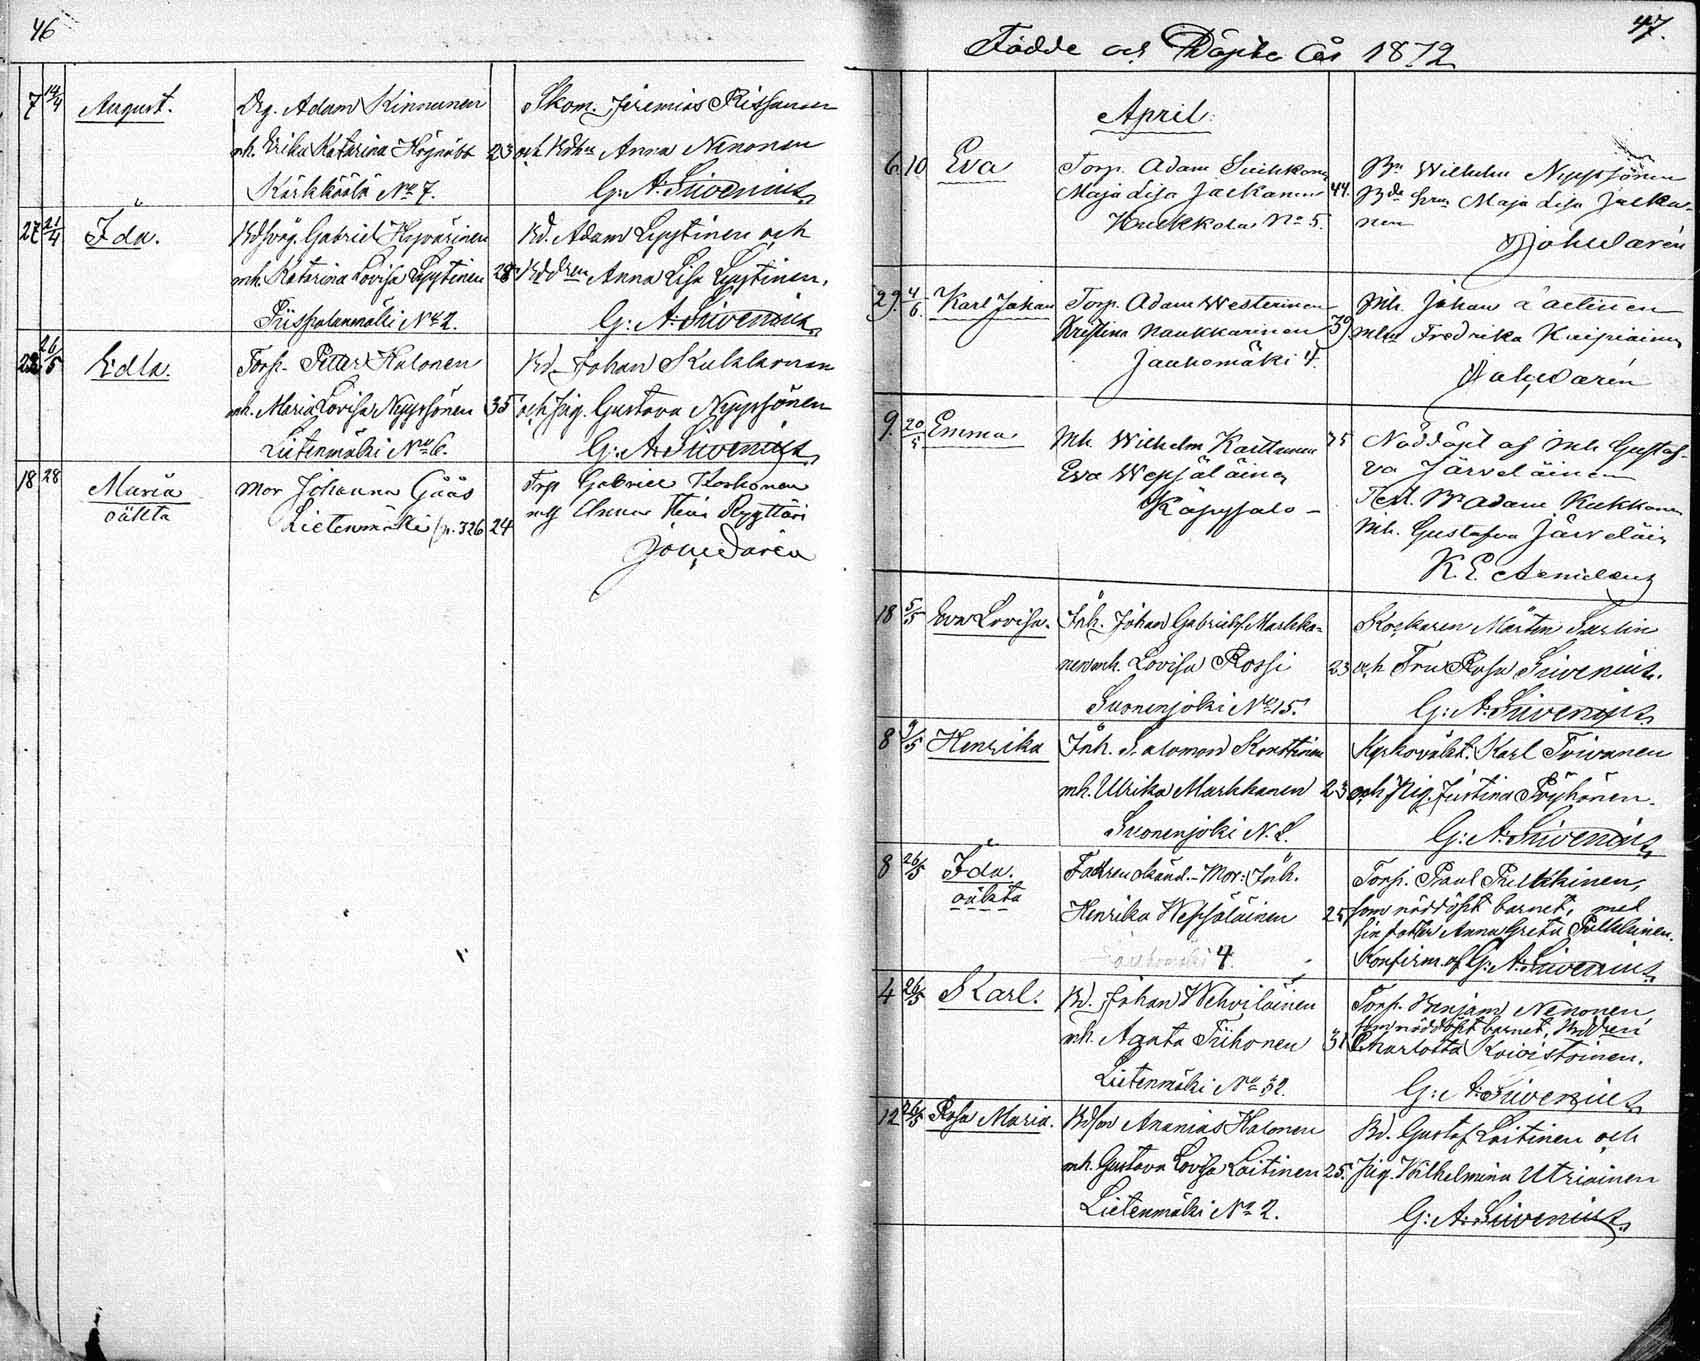 46
7 14/4 August.
Drg. Adam Kinnunen
mh. Erika Katarina Högnäbb 23
Kärkkäälä No 7.
Skom. Jeremias Rissanen
och Anna Nenonen
G: A: Siwenius
27 21/4 Ida.
Gabriel Hyvärinen
mh. Katarina Lovisa Lyytinen 28
Piispalanmäki No 2.
Bd. Adam Lyytinen och
Anna Lisa Lyytinen,
G: A: Siwenius
26/5 Edla.
Torp. Petter Halonen
mh. Maria Lovisa Nyyssönen 35
Lietenmäki No 6.
Bd. Johan Kukkonen
och Pig. Gustava Nyyssönen
G: A: Siwenius
18 28 Maria
oäkta
Mor Johanna Gåås
Lietenmäki p. 326 24
Torp Gabriel Korhonen
Anna Ryyttäri
47.
Födde och Döpte år 1872
April.
6. 10 Eva
Torp. Adam
Maja Lisa Jalkanen 44.
No 5.
Wilhelm Nyyssönen
Maja Lisa Jalka-
nen
29. 4/6. Karl Johan
Torp. Adam Westerinen
Kristina Naukkarinen 39
Jauhomäki 4.
Mh. Johan
Fredrika
9. 20/5 Emma
Mh. Wilhelm 35
Eva Wepsäläinen
Käpysalo –
Nöddöpt af Mh. Gustaf-
va Järveläinen
Test. Bn Adam Kukkonen
Mh. Gustafva
K. E.
18 5/5 Eva Lovisa.
Inh. Johan Gabrielss. Markka-
nen mh. Lovisa Rossi 23
Suonenjoki No 15.
Klockaren Mårten Sarlin
och Fru Rosa Siwenius.
G: A: Siwenius
8 9/5 Henrika
Inh. Salomon Konttinen
mh. Ulrika Markkanen 23
Suonenjoki N. 2.
Karl Toivanen
och Pig. Justina Pöyhönen.
G: A: Siwenius
8 26/5 Ida.
oäkta
Fadren okänd. – Mor: Inh.
Henrika Wepsäläinen 25
4.
Torp. Paul Pulkkinen,
som nöddöpt barnet, med
sin dotter Anna Greta Pulkkinen.
Konfirm. af G: A: Siwenius
4 26/5 Karl.
Bd. Johan Wehviläinen
mh. Agata Tiihonen 31
Lietenmäki No 32.
Torp. Benjam. Nenonen,
som nöddöpt barnet,
Charlotta Koivistoinen.
G: A: Siwenius
12 26/5 Rosa Maria.
Bdson Ananias Halonen
mh. Gustava Lovisa Laitinen 25.
Lietenmäki No 2.
Bd. Gustaf Laitinen och
Pig. Wilhelmina Utriainen
G: A: Siwenius